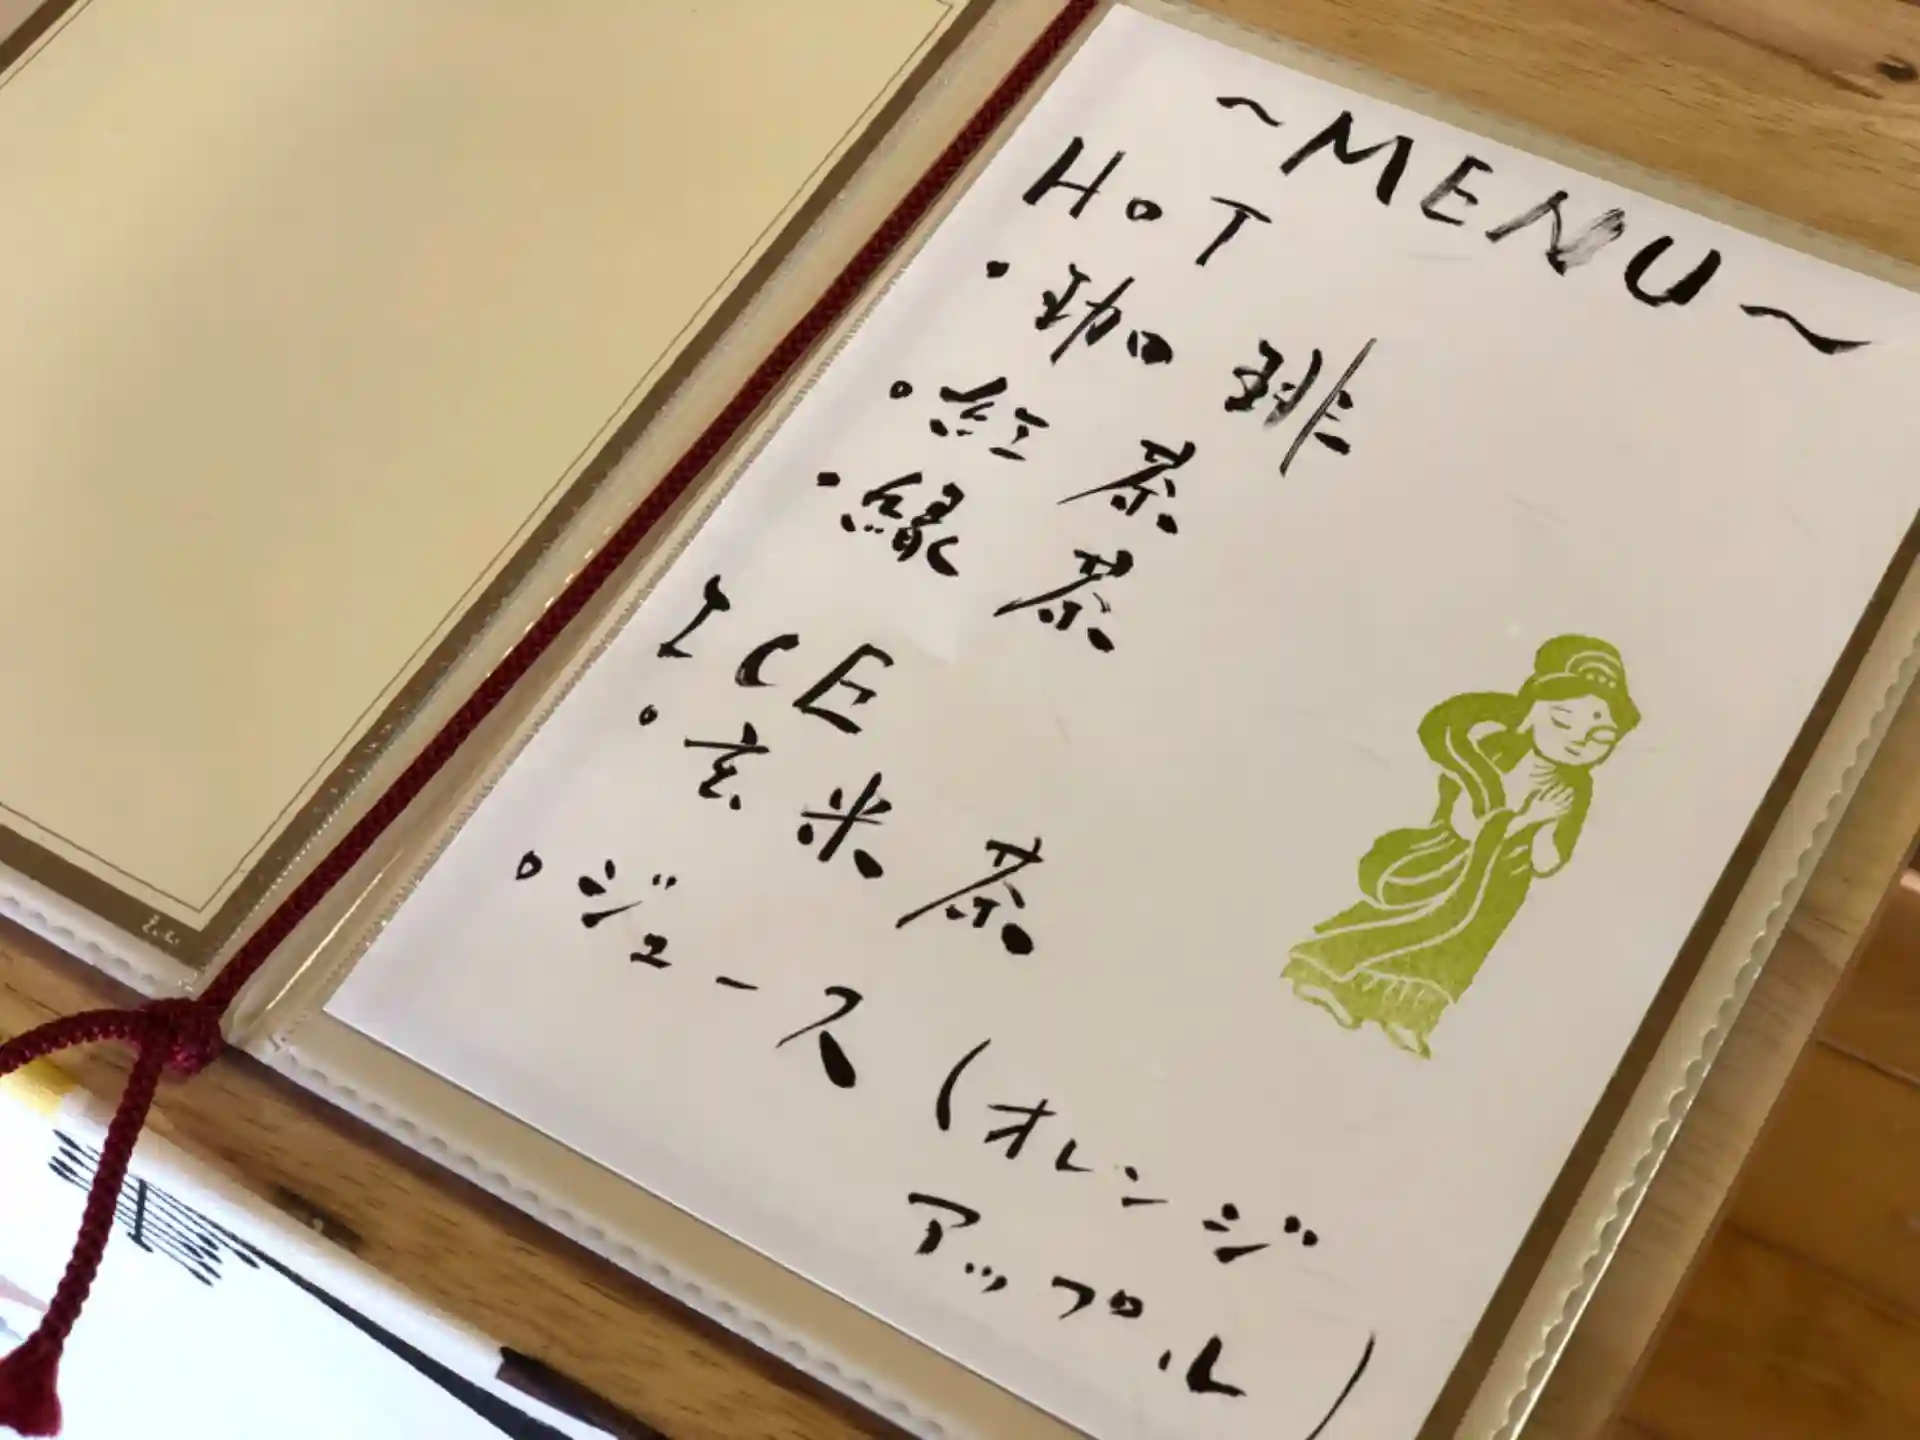 ~MENU~
HOT
・珈琲
・紅茶
・緑茶
ICE
・玄米茶
・ジュース(オレンジ
アップル)